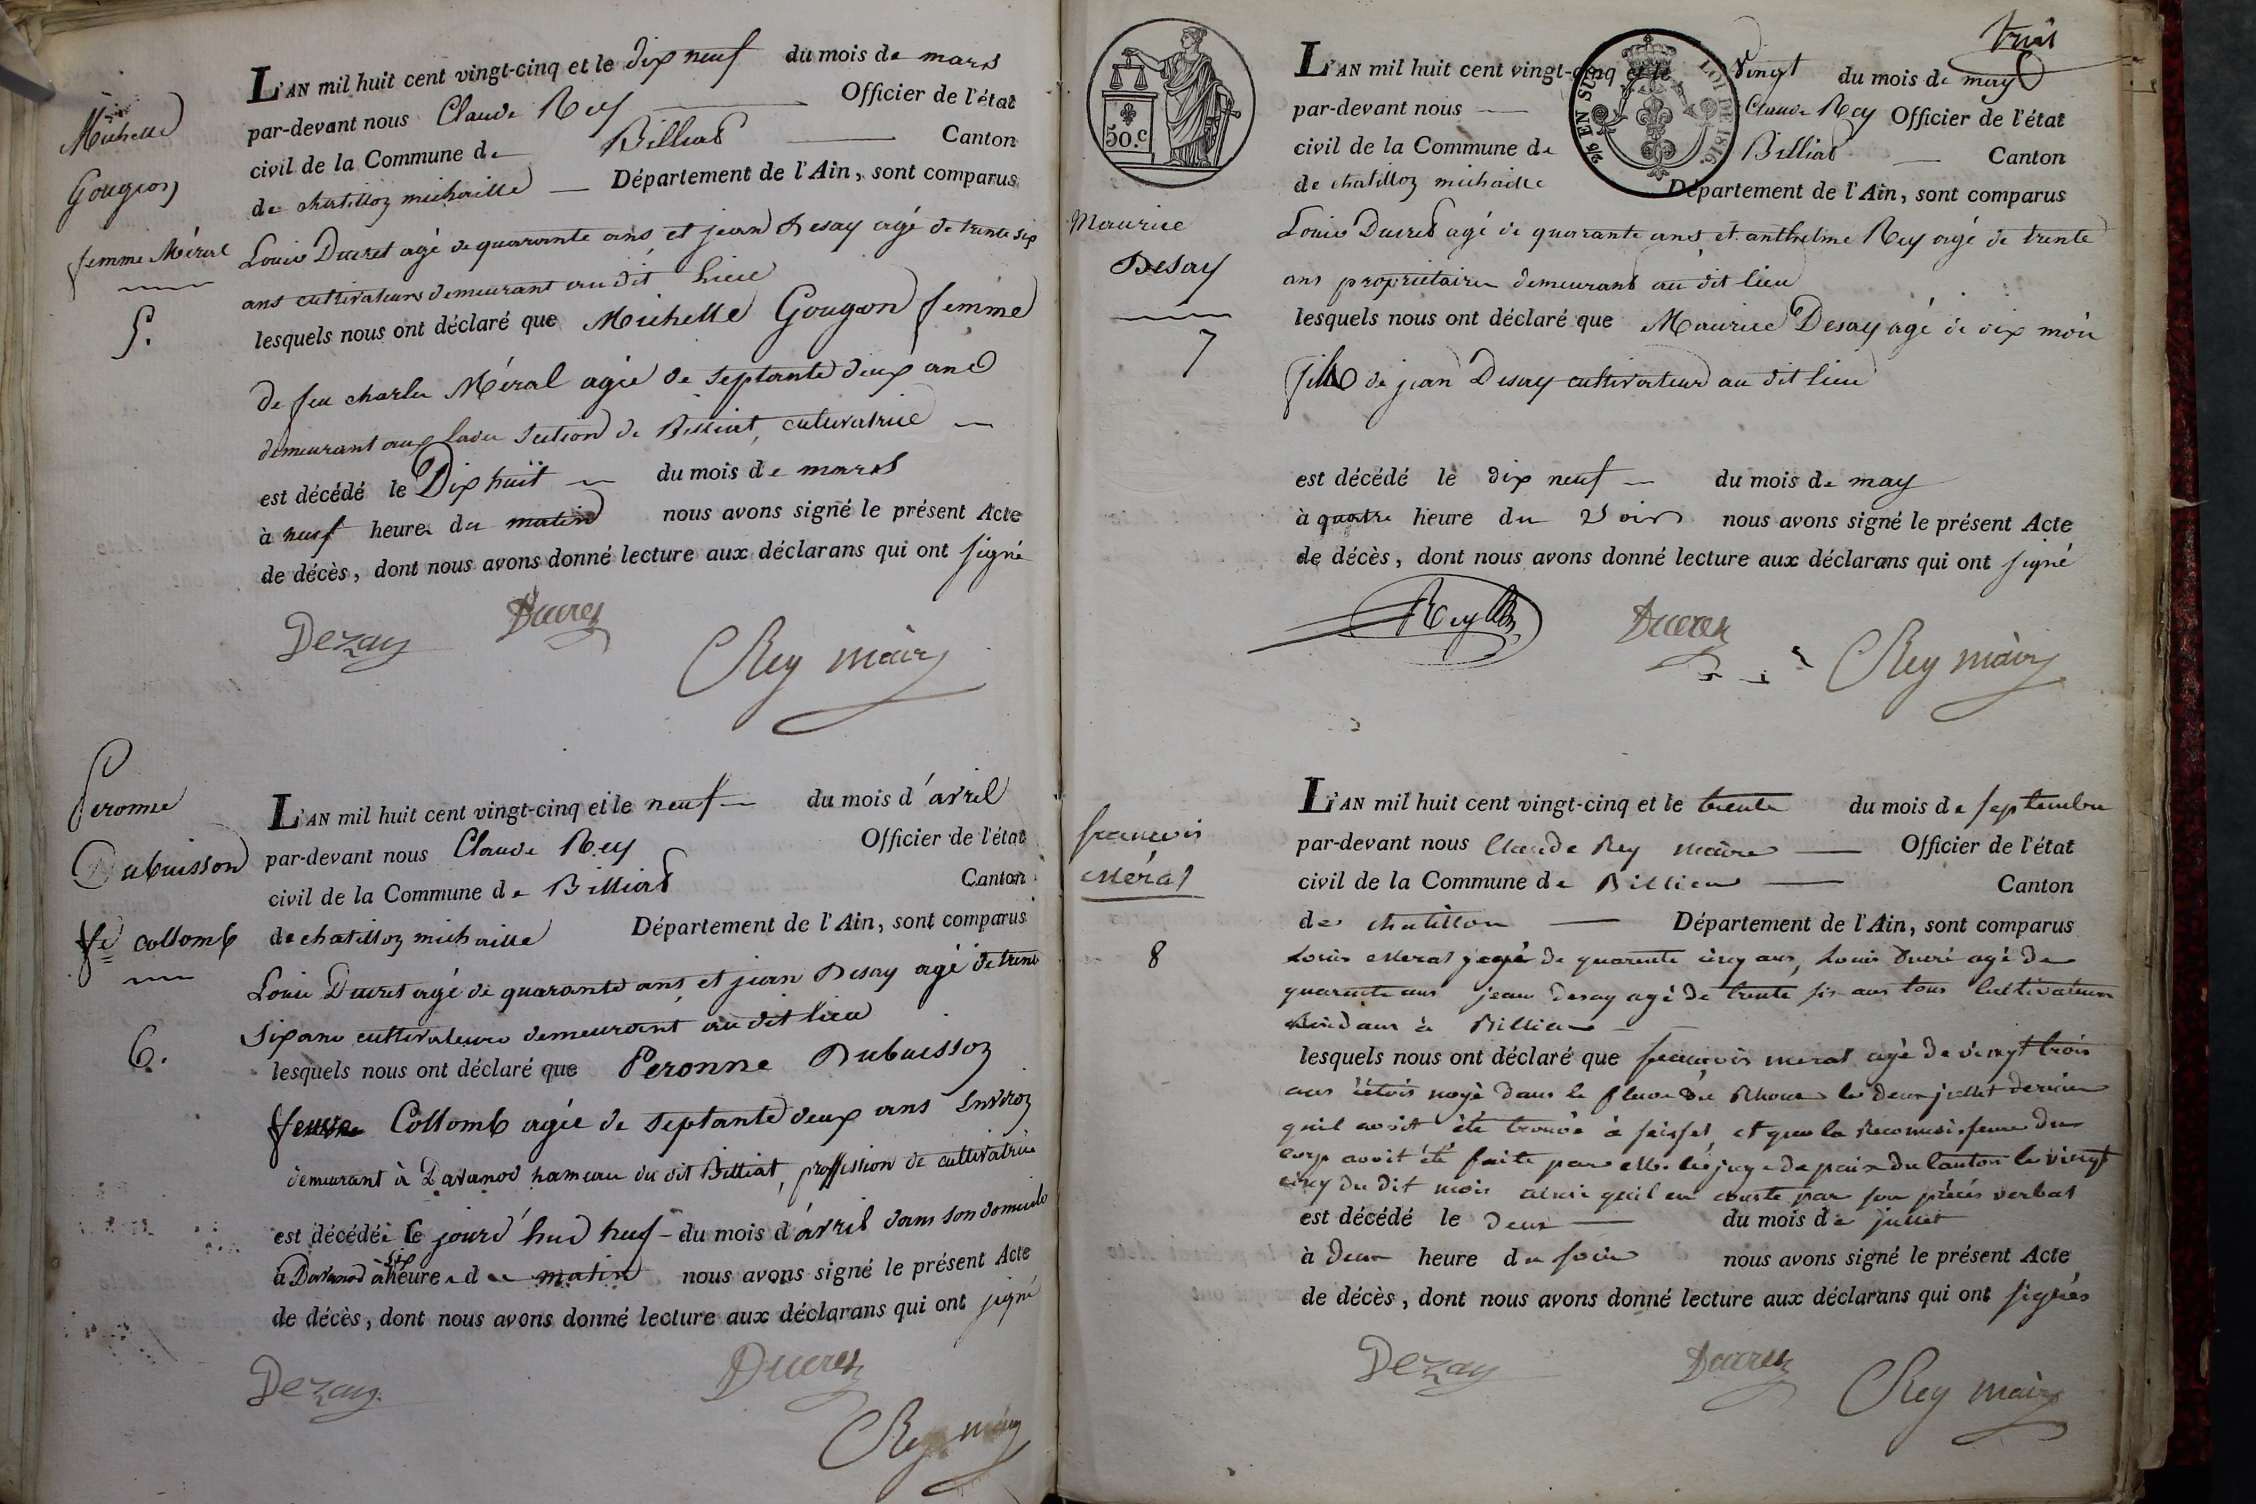 Michelle
Gougon
femme Méral
5.
L'AN mil huit cent vingt-cinq et le dix neuf du mois de mars
par-devant nous Claude Rey Officier de l'état
civil de la Commune de Billiat Canton
de chatillon michaille Département de l'Ain, sont comparus
Louis Ducret agé de quarante ans, et jean Desay agé de trente six
ans cultivateurs demeurant au dit lieu
lesquels nous ont déclaré que Michelle Gougon femme
de feu charles Méral agée de septante deux ans
demeurant aux section de Billiat, cultivatrice
est décédé le Dix huit du mois de mars
à neuf heures du matin nous avons signé le présent Acte
de décès, dont nous avons donné lecture aux déclarans qui ont signé
Dezay Ducret
CRey maire
Peronne
Dubuisson
fe collomb
6.
L'AN mil huit cent vingt-cinq et le neuf du mois d'avril
par-devant nous Claude Rey Officier de l'état
civil de la Commune de Billiat Canton
de chatillon michaille Département de l'Ain, sont comparus
Louis Ducret agé de quarante ans, et jean Desay agé de trente
six ans cultivateurs demeurant au dit lieu
lesquels nous ont déclaré que Peronne Dubuisson
Collomb agée de septante deux ans environ
demeurant à Davanod hameau du dit Billiat, proffession de cultivatrice
est décédée le jourd'hui neuf du mois d'avril dans son domicile
à Davanod à six heures du matin nous avons signé le présent Acte
de décès, dont nous avons donné lecture aux déclarans qui ont signé
Dezay Ducret
CRey maire
50.c
2/5 EN SUS
LOI DE 1816.
trois
Maurice
Desay
7
L'AN mil huit cent vingt-cinq et le vingt du mois de may
par-devant nous Claude Rey Officier de l'état
civil de la Commune de Billiat Canton
de chatillon michaille Département de l'Ain, sont comparus
Louis Ducret agé de quarante ans, et anthelme Rey agé de trente
ans propriétaires demeurant au dit lieu
lesquels nous ont déclaré que Maurice Desay agé de dix mois
fils de jean Desay cultivateur au dit lieu
est décédé le dix neuf du mois de may
à quatre heure du soir nous avons signé le présent Acte
de décès, dont nous avons donné lecture aux déclarans qui ont signé
Rey Ducret CRey maire
francois
Méral
8
L'AN mil huit cent vingt-cinq et le trente du mois de septembre
par-devant nous Claude Rey maire Officier de l'état
civil de la Commune de Billieu Canton
de chatillon Département de l'Ain, sont comparus
Louis Meral agé de quarente cinq ans, Louis Ducré agé de
quarente ans jean desay agé de trente six ans tous cultivateurs
à Billieu
lesquels nous ont déclaré que francois meral agé de vingt trois
ans s'étois noyé dans le fleuve du Rhone le deux juillet dernier
qu'il avoit été trouvé à seissel, et que la Reconnoissence du
corp avoit été faite par le juge de paix du Canton le vingt
cinq du dit mois ainsi qu'il en conste par son procès verbal
est décédé le deux du mois de juillet
à deux heure du soir nous avons signé le présent Acte
de décès, dont nous avons donné lecture aux déclarans qui ont signés
Dezay Ducret CRey maire